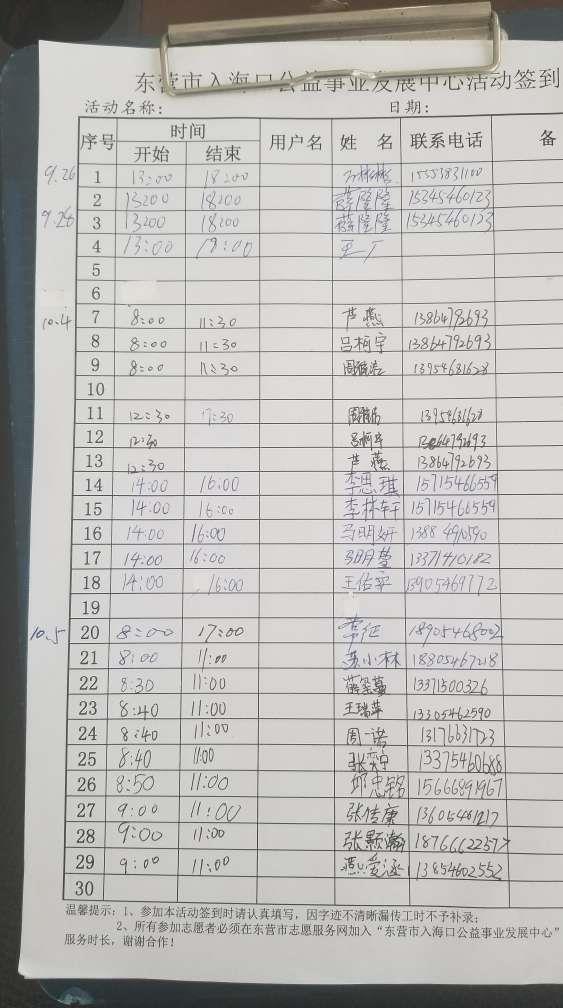 东营市入海口公益事业发展中心活动签到
活动名称： 日期：
序号 时间 用户名 姓 名 联系电话 备
开始 结束
9.26 1 13:00 18:00 15553831100
2 13:00 18:00 薛隆隆 15345460123
9.28 3 13:00 18:00 薛隆隆 15345460123
4 13:00 18:00 王丁
5
6
10.4 7 8:00 11:30 芦燕 13864792693
8 8:00 11:30 吕柯宇 13864792693
9 8:00 11:30 13954631628
10
11 12:30 17:30 13954631628
12 12:30 吕柯宇 13864792693
13 12:30 芦燕 13864792693
14 14:00 16:00 李思琪 15715466559
15 14:00 16:00 李林轩 15715466559
16 14:00 16:00 马明妍
17 14:00 16:00 13371410182
18 14:00 16:00 王佑实 13905469772
19
10.5 20 8:00 17:00 常征 18905468002
21 8:00 11:00 苏小林 18805467218
22 8:30 11:00 13371500326
23 8:40 11:00 王瑞苹 13305462590
24 8:40 11:00 周一诺 13176631723
25 8:40 11:00 张奕宁 13375460688
26 8:50 11:00 邱忠铭 15666891967
27 9:00 11:00 张传康 13605461217
28 9:00 11:00 张颢瀚 18766622577
29 9:00 11:00 燕爱涵 13854602552
30
温馨提示：1、参加本活动签到时请认真填写，因字迹不清晰漏传工时不予补录；
2、所有参加志愿者必须在东营市志愿服务网加入“东营市入海口公益事业发展中心”
服务时长，谢谢合作！